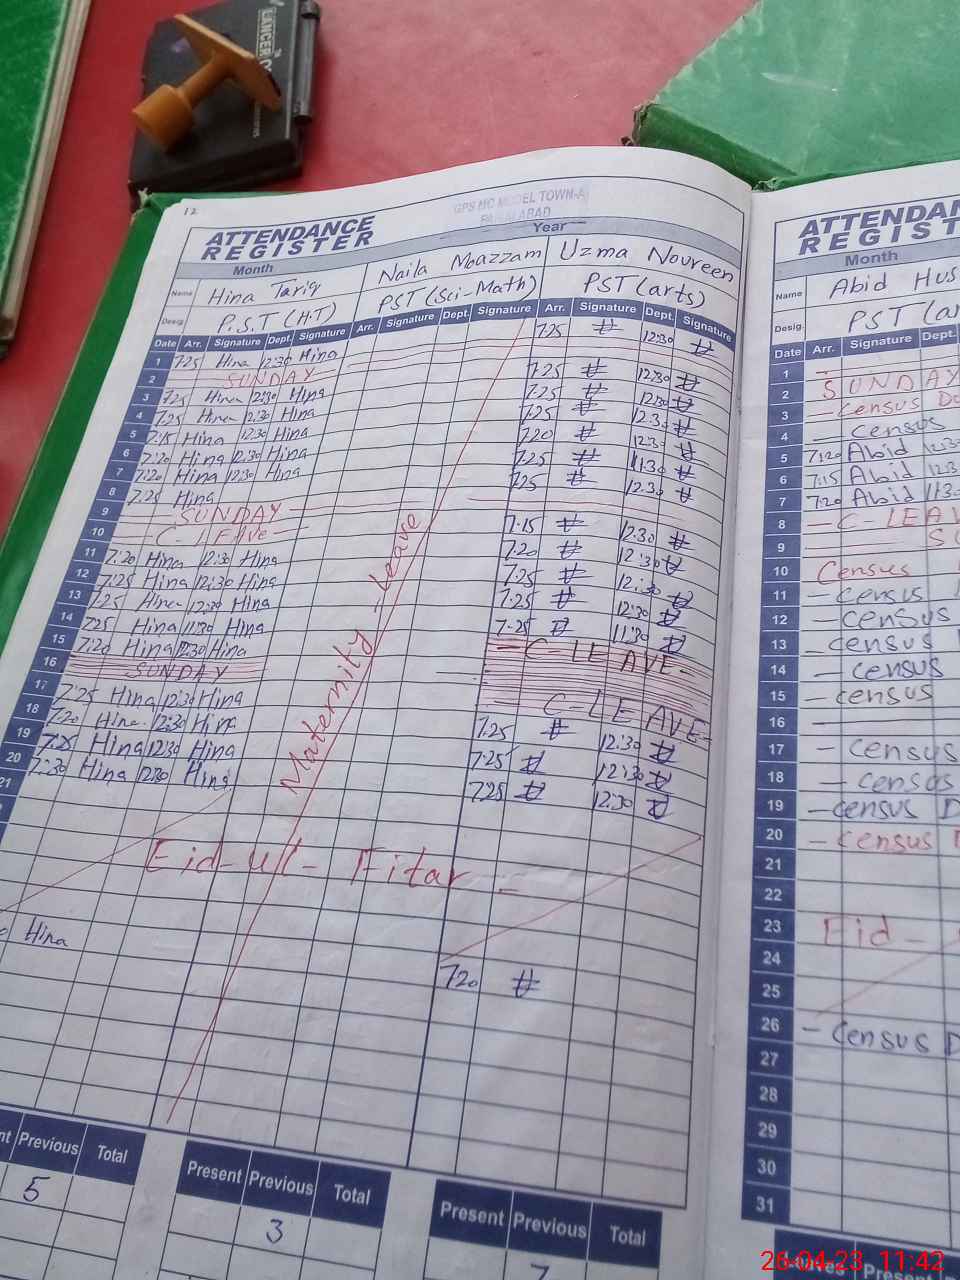 LANCER
12
GPS MC MODEL TOWN-A
FAISALABAD
ATTENDANCE
REGISTER
Month
Year
Name Hina Tariq Naila Moazzam Uzma Noureen
Desig. P.S.T (H.T) PST (Sci-Math) PST (arts)
Date Arr. Signature Dept. Signature Arr. Signature Dept. Signature Arr. Signature Dept. Signature
1 7.25 Hina 12:30 Hina 7.25 12:30
2 SUNDAY
3 7.25 Hina 12:30 Hina 7.25 12:30
4 7.25 Hina 12:30 Hina 7.25 12:30
5 7.15 Hina 12:30 Hina 7.25 12:30
6 7:20 Hina 12:30 Hina 7.20 12:30
7 7:20 Hina 12:30 Hina 7.25 11:30
8 7:25 Hina 7.25 12:30
9 SUNDAY
10 C-LEAVE 7.15 12:30
11 7.20 Hina 12:30 Hina 7.20 12:30
12 7:25 Hina 12:30 Hina 7.25 12:30
13 7.25 Hina 12:30 Hina 7.25 12:30
14 7.25 Hina 11:30 Hina 7.25 11:30
15 7:20 Hina 12:30 Hina - C-LEAVE-
16 SUNDAY
17 7:25 Hina 12:30 Hina C-LEAVE-
18 7.20 Hina 12:30 Hina 7.25 12:30
19 7.25 Hina 12:30 Hina 7.25 12:30
20 7:20 Hina 12:30 Hina 7.25 12:30
21
Maternity - Leave
Eid-ul-Fitar -
Hina 7.20
Previous Total
5
Present Previous Total
3
Present Previous Total
7
ATTENDAN
REGIST
Month
Name Abid Hus
Desig. PST (ar
Date Arr. Signature Dept.
1
2 SUNDAY
3 - Census Du
4 - Census
5 7:20 Abid 12:30
6 7:15 Abid 12:3
7 7.20 Abid 11:30
8 - C-LEAV
9 S
10 Census
11 - Census
12 - Census
13 - census
14 - census
15 - census
16
17 - Census
18 - Census
19 - census D
20 - census
21
22
23 Eid -
24
25
26 - Census D
27
28
29
30
31
Leaves Present
26-04-23 11:42